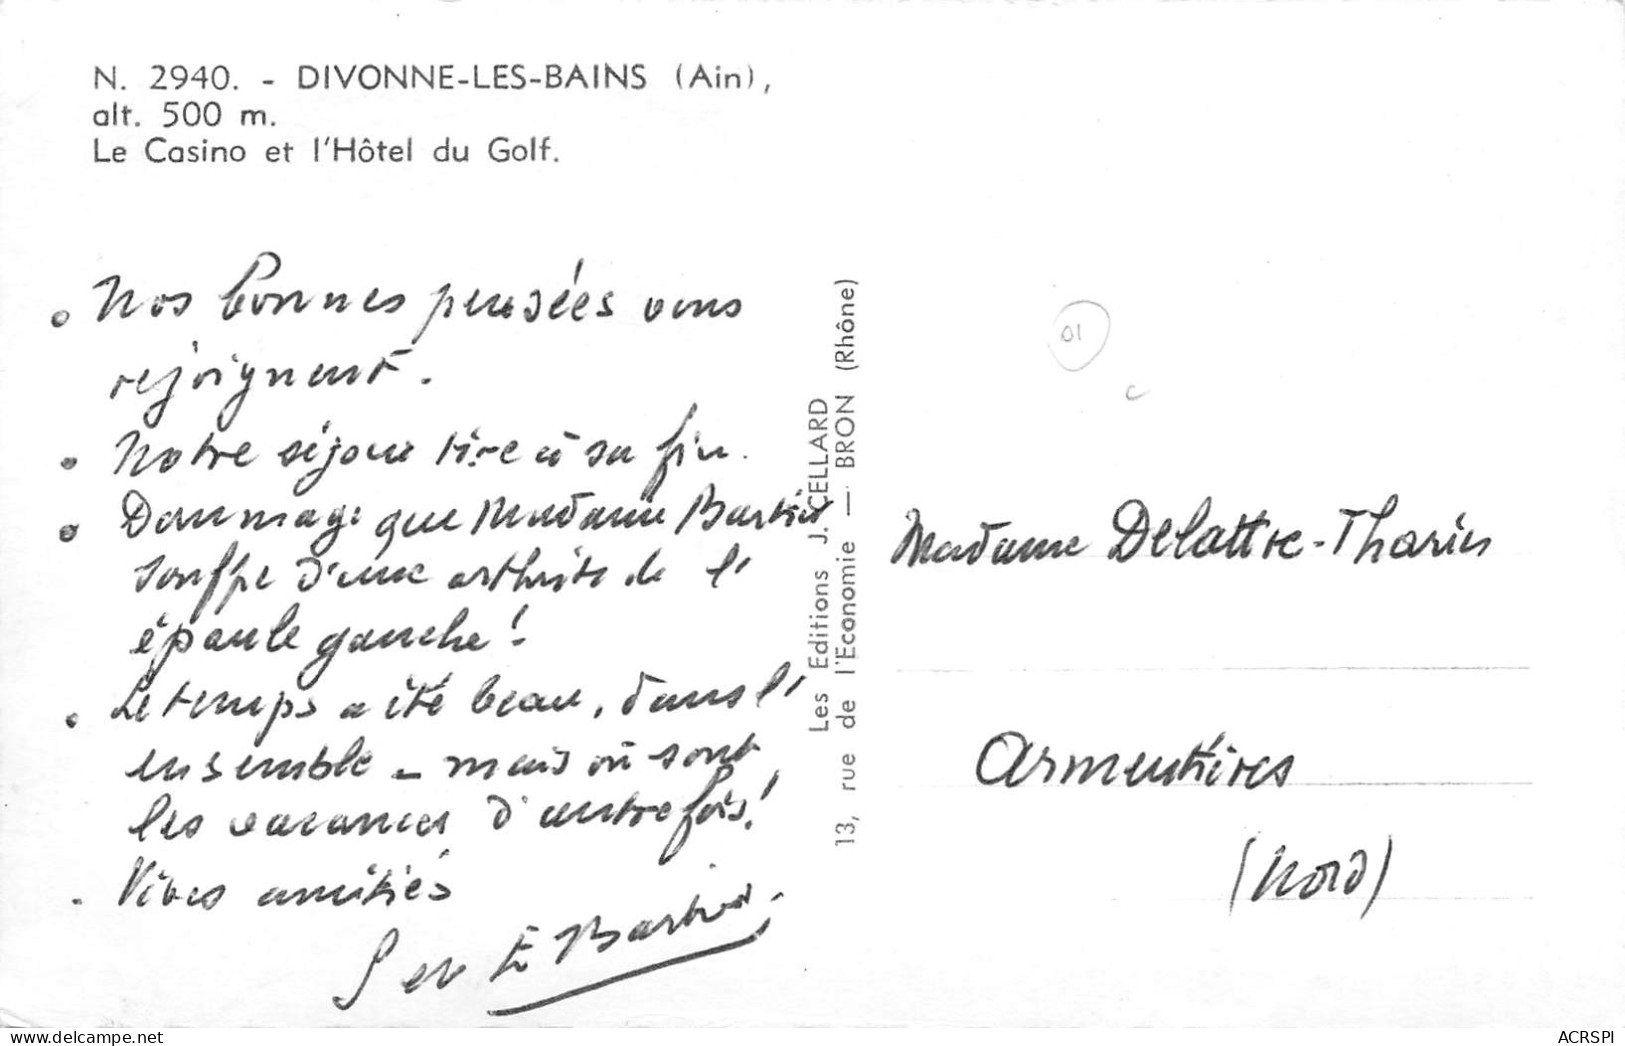 N. 2940. - DIVONNE-LES-BAINS (Ain),
alt. 500 m.
Le Casino et l'Hôtel du Golf.
• Nos bonnes pensées vous
rejoignent.
• Notre séjour tire à sa fin.
• Dommage que Madame
souffre d'une arthrite de l'
épaule gauche!
• Le temps a été beau, dans l'
ensemble - mais où sont
les vacances d'autrefois!
- Vives amitiés
Les Editions J. CELLARD
13, rue de l'Economie — BRON (Rhône)
01
Madame Delattre-
Armentières
(Nord)
www.delcampe.net
ACRSPI